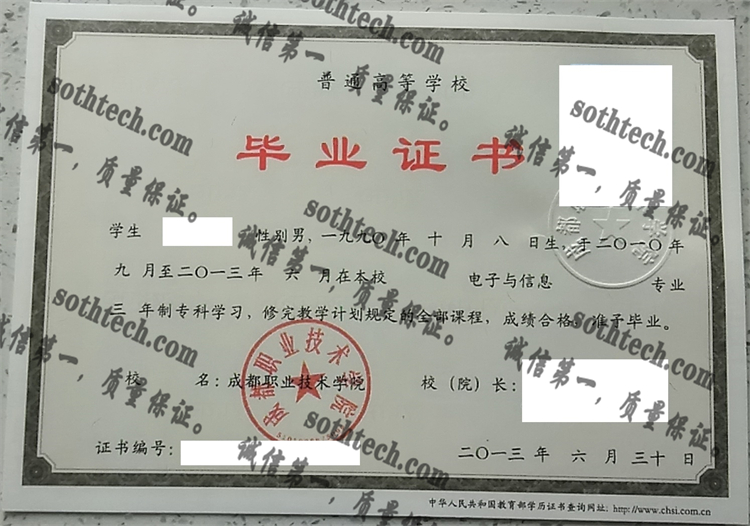 普通高等学校
毕业证书
学生 性别男，一九九〇年 十 月 八 日生，于二〇一〇年
九 月至二〇一三年 六 月在本校 电子与信息 专业
三 年制专科学习，修完教学计划规定的全部课程，成绩合格，准予毕业。
校 名：成都职业技术学院 校（院）长：
成都职业技术学院
证书编号：
二〇一三 年 六 月 三十 日
中华人民共和国教育部学历证书查询网址：http://www.chsi.com.cn
sothtech.com
诚信第一，质量保证。
sothtech.com
诚信第一，质量保证。
sothtech.com
诚信第一，质量保证。
sothtech.com
诚信第一，质量保证。
sothtech.com
诚信第一，质量保证。
sothtech.com
诚信第一，质量保证。
sothtech.com
诚信第一，质量保证。